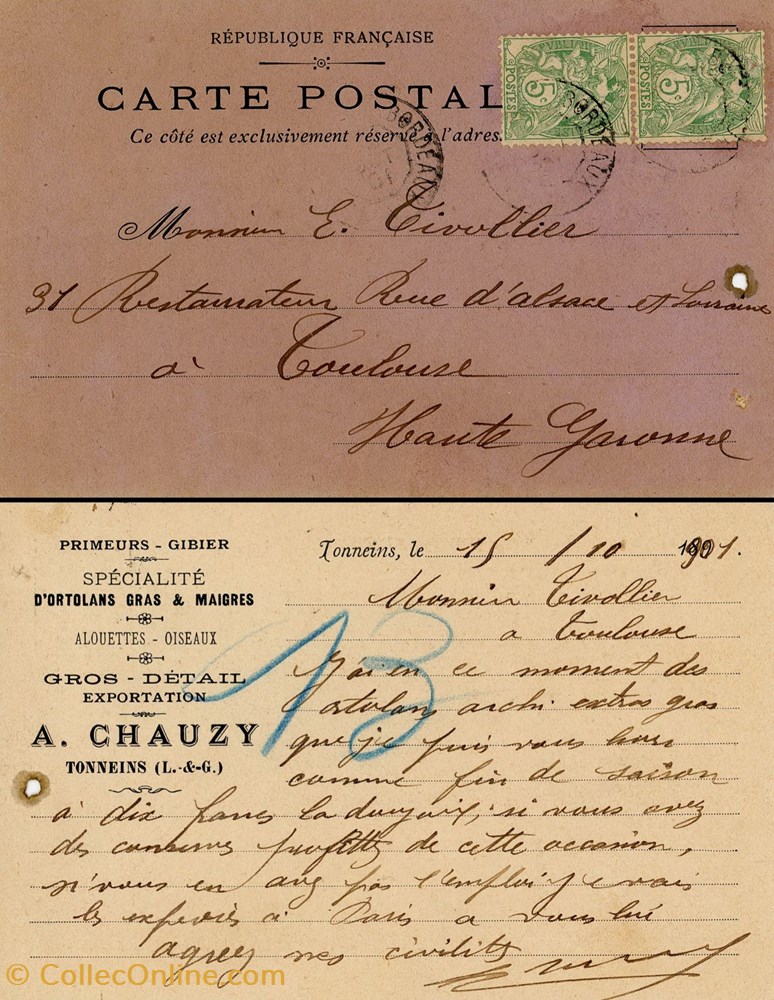 RÉPUBLIQUE FRANÇAISE
CARTE POSTAL
Ce côté est exclusivement réservé à l'adres
POSTES 5c
POSTES 5c
BORDEAUX
BORDEAUX
Monsieur E. Tivollier
31 Restaurateur Rue d'alsace et Lorraine
à Toulouse
Haute Garonne
PRIMEURS - GIBIER
SPÉCIALITÉ
D'ORTOLANS GRAS & MAIGRES
ALOUETTES - OISEAUX
GROS - DÉTAIL
EXPORTATION
A. CHAUZY
TONNEINS (L.-&-G.)
13
Tonneins, le 15 /10 1901.
Monsieur Tivollier
a Toulouse
J'ai en ce moment des
ortolans archi extras gros
que je puis vous
comme fin de saison
à dix francs la douzaix; si vous avez
des conserves profittes de cette occasion,
si vous en avez pas l'emploi je vais
les a Paris a vous lui
agreez mes civilités
© CollecOnline.com